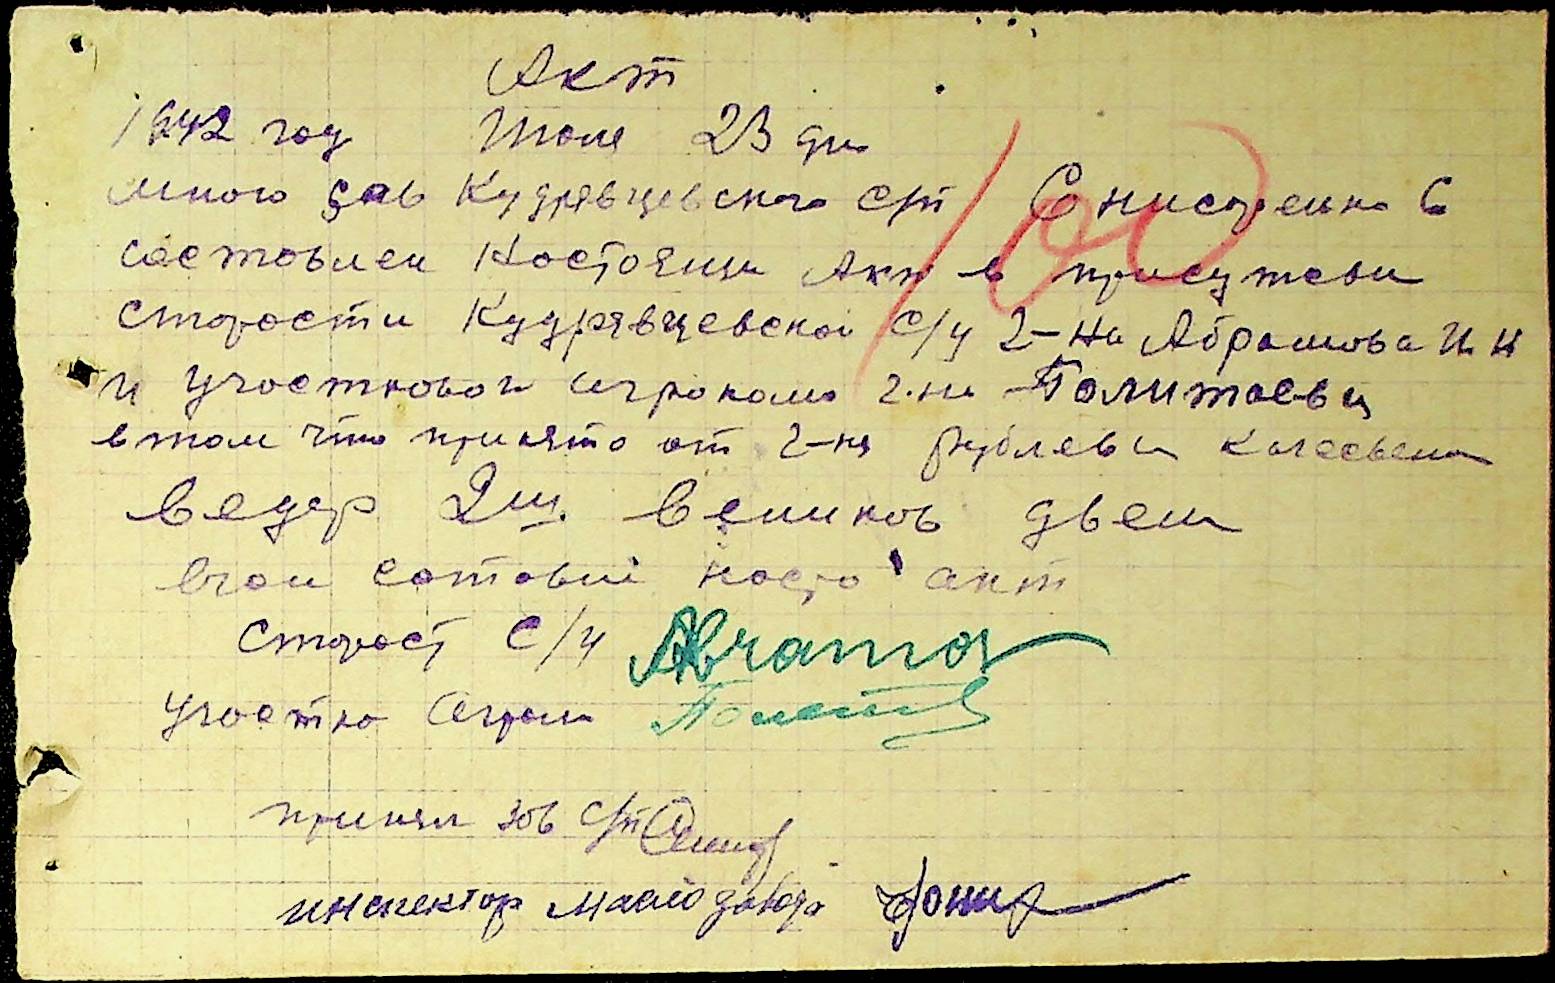 Акт
1942 год Июля 23 дня
мною зав Кудрявцевского с/п Онистренко С
составлен Настоящи Акт в присутсви
старости Кудрявцевской с/у г-на Абрамова И И
и участковои агронома г.на Политаева
втом что принято от г-на Рублева
Ведер 2 ш. Веников двен
вчом состовш насто акт
старост С/у Abramov
участко агром
принял зав с/п
инспектор маслозавода
100